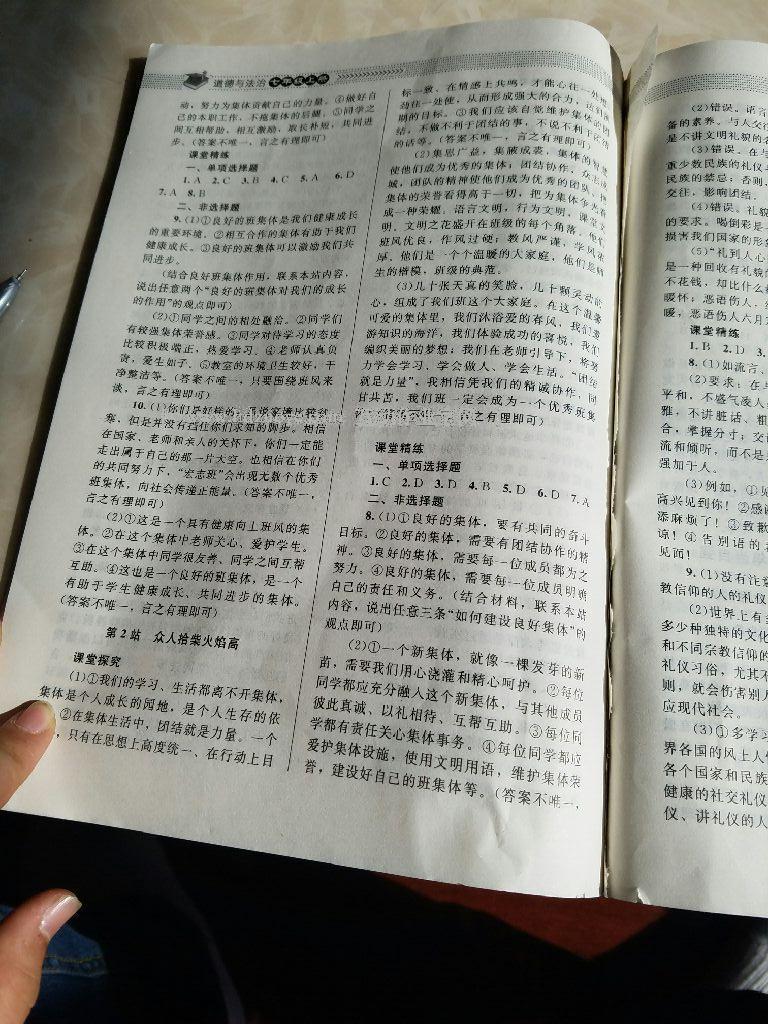 道德与法治 七年级上册
动，努力为集体贡献自己的力量。④做好自
己的本职工作，不拖集体的后腿。⑤同学之
间互相帮助，相互激励，取长补短，共同进
步。(答案不唯一，言之有理即可)
课堂精练
一、单项选择题
1. A 2. C 3. B 4. C 5. A 6. D
7. A 8. B
二、非选择题
9. (1)①良好的班集体是我们健康成长
的重要环境。②相互合作的集体有助于我们
健康成长。③良好的班集体可以激励我们共
同进步。
(结合良好班集体作用，联系本站内容，
说出任意两个“良好的班集体对我们的成长
的作用”的观点即可)
(2)①同学之间的相处融洽。②同学们
有较强集体荣誉感。③同学对待学习的态度
比较积极端正，热爱学习。④老师认真负
责，爱生如子。⑤教室的环境卫生较好，干
净整洁等。(答案不唯一，只要围绕班风来
谈，言之有理即可)
10. (1)你们是好样的，虽说家境比较贫
寒，但是并没有挡住你们求知的脚步。相信
在国家、老师和亲人的关怀下，你们一定能
走出属于自己的那一片天空。也相信在你们
的共同努力下，“宏志班”会出现无数个优秀
班集体，向社会传递正能量。(答案不唯一，
言之有理即可)
(2)①这是一个具有健康向上班风的集
体。②在这个集体中老师关心、爱护学生。
③在这个集体中同学很友善、同学之间互帮
互助。④这也是一个良好的班集体，是一个
有助于学生健康成长、共同进步的集体。
(答案不唯一，言之有理即可)
第 2 站 众人拾柴火焰高
课堂探究
(1)①我们的学习、生活都离不开集体，
集体是个人成长的园地，是个人生存的依
②在集体生活中，团结就是力量。一个
，只有在思想上高度统一、在行动上目
标一致、在情感上共鸣，才能心往一处想，
劲往一处使，从而形成强大的合力，达到预
期的目标。③我们应该自觉维护集体的团
结，不做不利于团结的事，不说不利于团结
的话等。(答案不唯一，言之有理即可)
(2)集思广益，集腋成裘，集体的智慧
使他们成为优秀的集体；团结协作，众志成
城，团队的精神使他们成为优秀的团队；把
集体的荣誉看得高于一切，把为集体争光看
成一种荣耀。语言文明，行为文明，课堂文
明，文明之花盛开在班级的每个角落。他们
班风优良，作风过硬；教风严谨，学风浓
厚。他们是一个个温暖的大家庭，他们是师
生的楷模，班级的典范。
(3)几十张天真的笑脸，几十颗灵动的
心，组成了我们班这个大家庭。在这个温馨
可爱的集体里，我们沐浴爱的春风，我们遨
游知识的海洋，我们体验成功的喜悦，我们
编织美丽的梦想；我们在老师引导下，将努
力学会学习、学会做人、学会生活。“团结
就是力量”，我相信凭我们的精诚协作、同
甘共苦，我们班一定会成为一个优秀班集
之有理即可)
课堂精练
一、单项选择题
1. C 2. D 3. D 4. B 5. D 6. D 7. A
二、非选择题
8. (1)①良好的集体，要有共同的奋斗
目标。②良好的集体，需要有团结协作的精
神。③良好的集体，需要每一位成员都为之
努力。④良好的集体，需要每一位成员明确
自己的责任和义务。(结合材料，联系本站
内容，说出任意三条“如何建设良好集体”的
观点即可)
(2)①一个新集体，就像一棵发芽的新
苗，需要我们用心浇灌和精心呵护。②每位
同学都应充分融入这个新集体，与其他成员
彼此真诚、以礼相待、互帮互助。③每位同
学都有责任关心集体事务。④每位同学都应
爱护集体设施，使用文明用语，维护集体荣
誉，建设好自己的班集体等。(答案不唯一，
(2)错误。语言
备的素养。与人交往
是不讲文明礼貌的
(3)错误。在与
重少数民族的礼仪
民族的禁忌；否则，
交往，影响团结。
(4)错误。礼貌
的要求。喝倒彩是一
损害我们国家的形象
(5)“礼到人心
是一种回收有礼貌
不花钱，却比什么
暖怀；恶语伤人，
暖，恶语伤人六月
课堂精练
1. B 2. D 3.
8. (1)如流言、
(2)要求：在与
平和，不盛气凌人
雅，不讲脏话、粗
合，掌握分寸；交
流和倾听，而不是
强加于人。
(3)例如，①见
高兴见到你！②感
添麻烦了！③致歉
谅！④告别语的
见面！
9. (1)没有注意
教信仰的人的礼仪
(2)世界上有多
多少种独特的文化
和不同宗教信仰的
礼仪习俗，尤其不
则，就会伤害别人
应现代社会。
(3)①多学习
界各国的风土人情
各个国家和民族
健康的社交礼仪
仪、讲礼仪的人